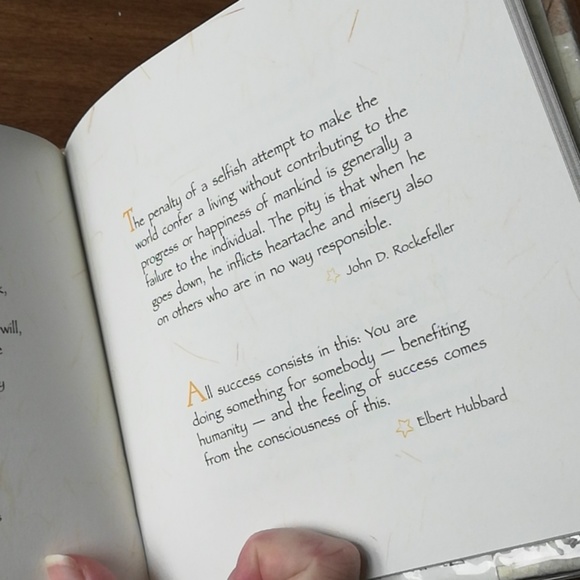 will,
The penalty of a selfish attempt to make the
world confer a living without contributing to the
progress or happiness of mankind is generally a
failure to the individual. The pity is that when he
goes down, he inflicts heartache and misery also
on others who are in no way responsible.
John D. Rockefeller
All success consists in this: You are
doing something for somebody — benefiting
humanity — and the feeling of success comes
from the consciousness of this.
Elbert Hubbard